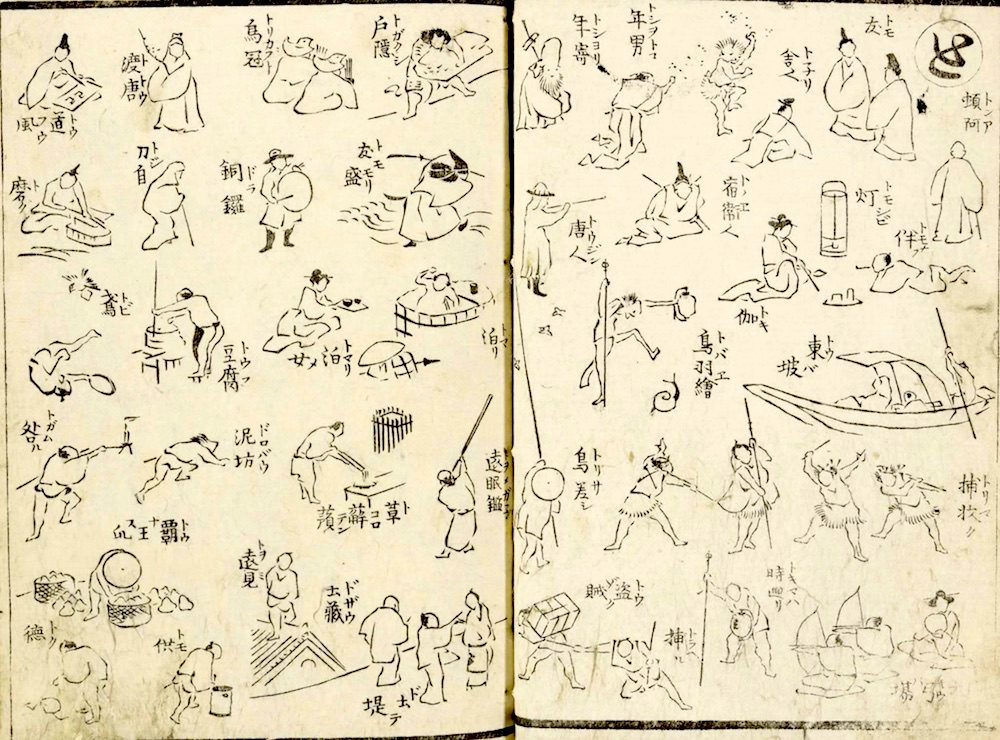 と
頓阿 トンア
友 トモ
舎人 トネリ
年男 トシヲトコ
年寄 トシヨリ
灯 トモシビ
伴フ トモナフ
宿衛人 トノヱ
伽 トキ
唐人 トウジン
東坡 トウバ
鳥羽繪 トバヱ
捕状ク トリマク
鳥差シ トリサシ
時廻リ トキマハリ
捕ル トラヘル
盗賊 トウゾク
戸隠 トガクシ
鳥冠 トリカブト
渡唐 トトウ
道風 トウフウ
友盛 トモモリ
銅鑼 ドラ
刀自 トジ
磨グ トグ
泊リ トマリ
泊リ女 トマリメ
豆腐 トウフ
鳶 トビ
遠眼鑑 トヲメガネ
草蘚 トコロテン
泥坊 ドロバウ
咎ル トガムル
覇王 トウナス
遠見 トヲミ
土藏 ドザウ
土堤 ドテ
供 トモ
德 トク